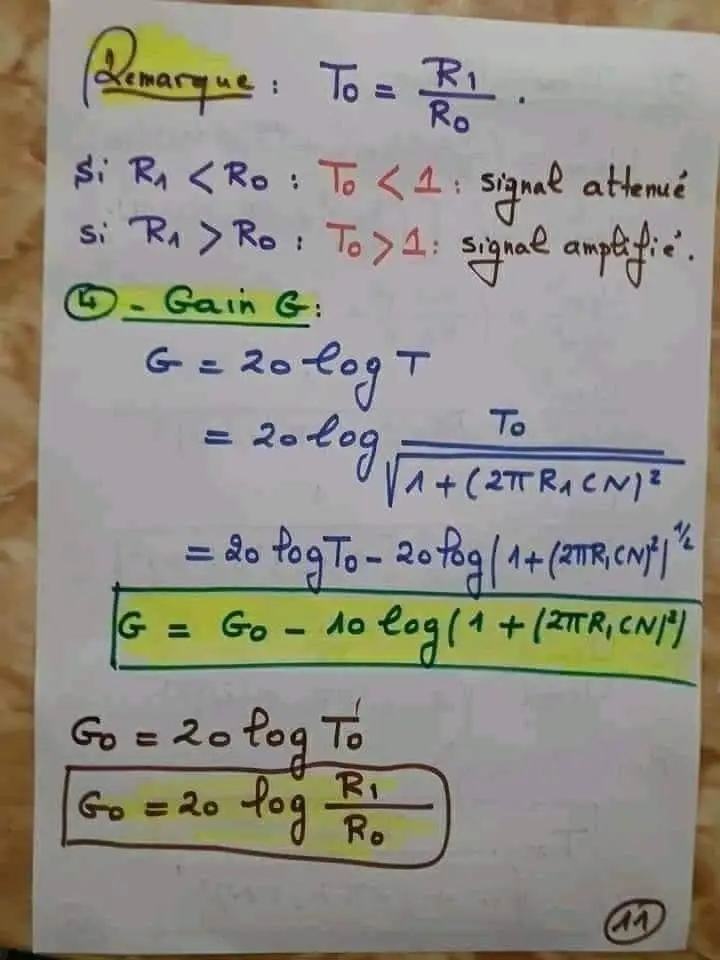 Remarque : T₀ = R₁/R₀ .
Si R₁ < R₀ : T₀ < 1 : signal attenué
si R₁ > R₀ : T₀ > 1 : signal amplifié.
④ - Gain G :
G = 20 log T
= 20 log T₀/√(1 + (2π R₁ C N)²)
= 20 log T₀ - 20 log (1 + (2πR₁CN)²)^1/2
G = G₀ - 10 log (1 + (2πR₁CN)²)
G₀ = 20 log T₀
G₀ = 20 log R₁/R₀
11